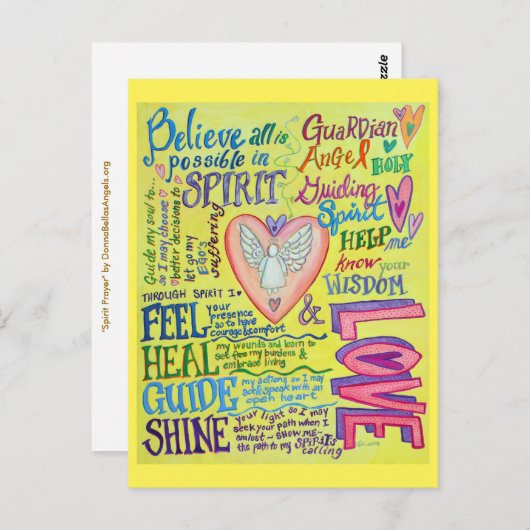 zzle
"Spirit Prayer" by DonnaBellasAngels.org
Believe all is
possible in
SPIRIT
Guide my soul to...
so I may choose
better decisions to
let go my
EGO's
suffering
GuaRDian
Angel
HOLY
Guiding
Spirit
HELP
me
know
your
WISDOM
THROUGH SPIRIT I
FEEL your
presence
so to have
courage & comfort
&
LOVE
HEAL my wounds and learn to
set free my burdens &
embrace living
GUIDE my actions so I may
speak with an
open heart
SHINE your light so I may
seek your path when I
am lost~ SHOW ME~
the path to my SPIRIT'S
calling